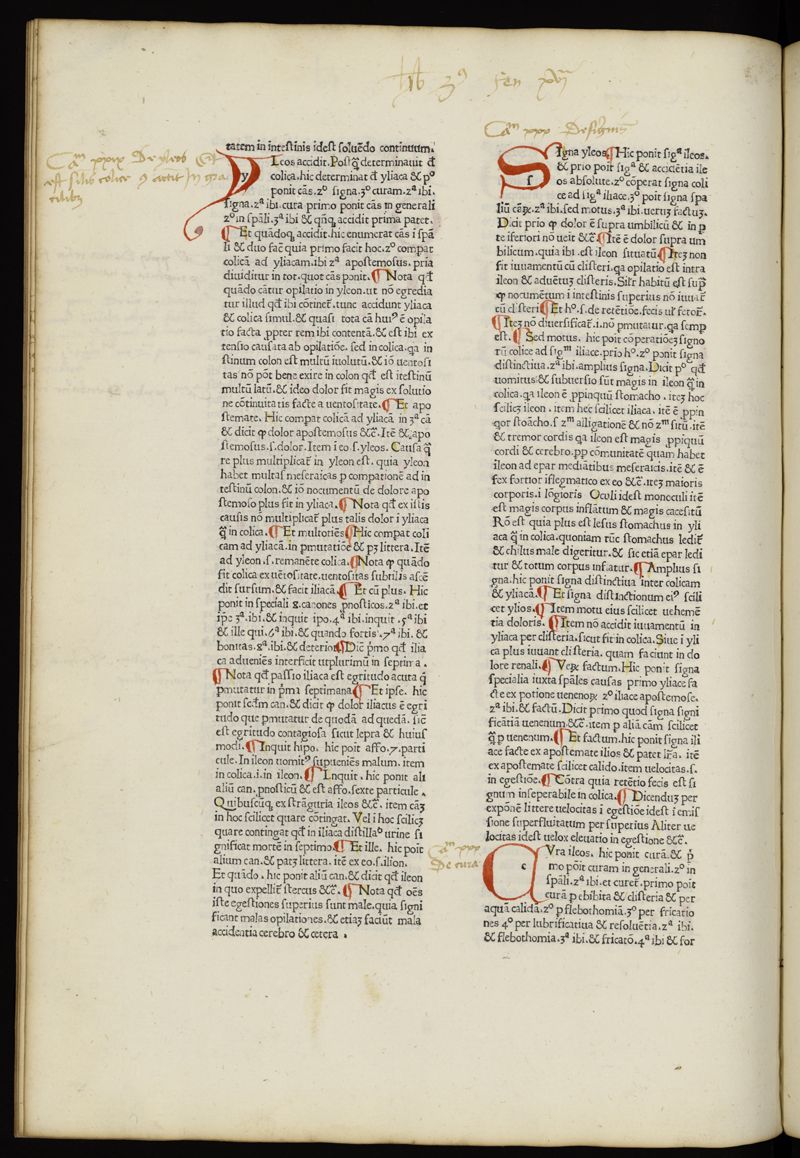 lib 3⁹ fen xvj
Caᵐ xxix De yleos
est silis colice
Caᵐ xxx De signis
Caᵐ xxx
De cura
tatem in intestinis idest soluẽdo continuum.
Yleos accidit. Postq̃ determinauit đ
colica. hic determinat đ yliaca & pᵒ
ponit cãs. zᵒ signa. 3ᵒ curam. zᵃ ibi.
signa. zᵃ ibi. cura primo ponit cãs in generali
zᵒ in spãli. 3ᵃ ibi & qñq accidit prima patet.
¶ Et quãdoq accidit. hic enumerat cãs i spã
li & duo fac̃ quia primo facit hoc. zᵒ compat
colicã ad yliacam. ibi zᵃ apostemosus. pria
diuiditur in tot. quot cãs ponit. ¶ Nota qđ
quãdo cãtur opilatio in yleon. ut nõ egredia
tur illud qđ ibi cõtinet̃. tunc accidunt yliaca
& colica simul. & quasi tota cã huiᵒ ẽ opila
tio facta ꝓpter rem ibi contentã. & est ibi ex
tensio causata ab opilatiõe. sed in colica. qa in
stinum colon est multũ iuolutũ. & iõ uentosi
tas nõ põt bene exire in colon qđ est itestinũ
multũ latũ. & ideo dolor fit magis ex solutio
ne cõtinuitatis facte a uentositate. ¶ Et apo
stemate. Hic compat colicã ad yliacã in 3ᵃ cã
& dicit ꝙ dolor apostemosus &c̃. Itẽ & apo
stemosus. s. dolor. Item i eo. s. yleos. Causa q̃
re plus multiplicat̃ in yleon est. quia yleon
habet multas meseraicas p compationẽ ad in
testinũ colon. & iõ nocumentũ de dolore apo
stemoso plus fit in yliaca. ¶ Nota qđ ex istis
causis nõ multiplicat̃ plus talis dolor i yliaca
q̃ in colica. ¶ Et multoriẽs ¶ Hic compat coli
cam ad yliacã. in pmutatiõe & pꝫ littera. Itẽ
ad yleon. s. remanẽte colica. ¶ Nota ꝙ quãdo
fit colica ex uẽtositate. uentositas subtilis ascẽ
dit sursum. & facit iliacã. ¶ Et cũ plus. Hic
ponit in speciali 8. canones pnosticos. zᵃ ibi. et
ipe 3ᵃ. ibi. & inquit ipo. 4ᵃ ibi. inquit. 5ᵃ ibi
& ille qui. 6ᵃ ibi. & quando fortis. 7ᵃ ibi. &
bonitas. 8ᵃ. ibi. & deterior ¶ Dic̃ pmo qđ ilia
ca adueniẽs interficit utplurimũ in septima.
¶ Nota qđ passio iliaca est egritudo acuta q̃
pmutatur in pma septimana ¶ Et ipse. hic
ponit secđm can. & dicit ꝙ dolor iliacus ẽ egri
tudo que pmutatur de quodã ad quedã. sic̃
est egritudo contagiosa sicut lepra & huius
modi. ¶ Inquit hipo. hic poit affo. 7. parti
cule. In ileon uomitᵒ supueniẽs malum. item
in colica. i. in ileon. ¶ Inquit. hic ponit ali
aliũ can. pnosticũ & est affo. sexte particule.
Quibuscũq ex strãguria ileos &c̃. item cãꝫ
in hoc scilicet quare cõtingat. Vel i hoc scilicꝫ
quare contingat qđ in iliaca distillaᵒ urine si
gnificat mortẽ in septimo. ¶ Et ille. hic poit
alium can. & patꝫ littera. itẽ ex eo. s. ilion.
Et quãdo. hic ponit aliũ can. & dicit qđ ileon
in quo expellit̃ stercus &c̃. ¶ Nota qđ oẽs
iste egestiones superius sunt male. quia signi
ficant malas opilationes. & etiaꝫ faciũt mala
accidentia cerebro & cetera.
Signa yleos ¶ Hic ponit sigᵃ ileos.
& prio poit sigᵃ & accidẽtia ile
os absolute. zᵒ cõperat signa coli
ce ad sigᵃ iliace. 3ᵒ poit signa spa
liũ cãꝝ. zᵃ ibi. sed motus. 3ᵃ ibi. ueruꝫ factuꝫ.
Dicit prio ꝙ dolor ẽ supra umbilicũ & in p
te iferiori nõ ueit &c̃ ¶ Itẽ ẽ dolor supra um
bilicum. quia ibi est ileon situatũ ¶ Iteꝫ non
fit iuuamentũ cũ clisteri. qa opilatio est intra
ileon & aduentuꝫ clisteris. Silr̃ habitũ est sup̃
ꝙ nocumẽtum i intestinis superius nõ iuuat̃
cũ clisteri ¶ Et hᵒ. s. de retẽtiõe. fecis ul̃ fetor̃.
¶ Iteꝫ nõ diuersificat̃. i. nõ pmutatur. qa semp
est. ¶ Sed motus. hic poit cõperatiõeꝫ signo
rũ colice ad sigᵐ iliace. prio hᵒ. zᵒ ponit signa
distinctiua. zᵃ ibi. amplius signa. Dicit pᵒ qđ
uomitus & subuersio sũt magis in ileon q̃ in
colica. qa ileon ẽ ꝓpinquũ stomacho. iteꝫ hoc
scilicꝫ ileon. item hec scilicet iliaca. itẽ ẽ ꝓpin
qor stoãcho. s zᵐ alligationẽ & nõ zᵐ sitũ. itẽ
& tremor cordis qa ileon est magis ꝓpiquũ
cordi & cerebro. ꝓp cõmunitatẽ quam habet
ileon ad epar mediãtibus meseraicis. itẽ & ẽ
fex fortior iflegmatico ex eo &c̃. iteꝫ maioris
corporis. i lõgioris Oculi idest monoculi itẽ
est magis corpus inflatum & magis cacefitũ
Rõ est quia plus est lesus stomachus in yli
aca q̃ in colica. quoniam tũc stomachus ledit̃
& chilus male digeritur. & sic etiã epar ledi
tur & totum corpus inflatur. ¶ Amplius si
gna. hic ponit signa distinctiua inter colicam
& yliacã. ¶ Et signa distinctionum eiᵒ scili
cet ylios. ¶ Item motu eius scilicet uehemẽ
tia doloris. ¶ Item nõ accidit iuuamentũ in
yliaca per clisteria. sicut fit in colica. Siue i yli
ca plus iuuant clisteria. quam faciunt in do
lore renali. ¶ Veꝝ factum. Hic ponit signa
specialia iuxta spãles causas primo yliace fa
cte ex potione uenenoꝝ zᵒ iliace apostemose.
zᵃ ibi. & factũ. Dicit primo quod signa signi
ficãtia uenenum. &c̃. item p aliã cãm scilicet
q̃ p uenenum. ¶ Et factum. hic ponit signa ili
ace facte ex apostemate ilios & patet lr̃a. itẽ
ex apostemate scilicet calido. item uelocitas. s.
in egestiõe. ¶ Cõtra quia retẽtio fecis est si
gnum inseperabile in colica. ¶ Dicenduꝫ per
exponẽ littere uelocitas i egestiõe idest i emis
sione superfluitatum per superius Aliter ue
locitas idest uelox eleuatio in egestione &c̃.
Cura ileos. hic ponit curã. & p̃
mo põit curam in generali. zᵒ in
spãli. zᵃ ibi. et curet̃. primo poit
curã p ebibita & clisteria & per
aquã calidã. zᵒ p flebothomiã. 3ᵒ per fricatio
nes 4ᵒ per lubrificatiua & resoluẽtia. zᵃ ibi.
& flebothomia. 3ᵃ ibi. & fricatõ. 4ᵃ ibi & for